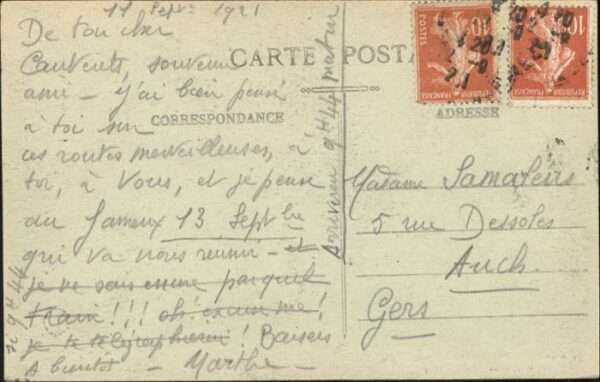 11 Sept 1921
De ton cher
Cauterets, souvenir
ami - j'ai bien pensé
à toi sur
ces routes merveilleuses, à
toi, à Vous, et je pense
au fameux 13 Septbre
qui va nous réunir - et
je ne sais encore par quel
train!!! oh! excuse me!
je te télégraphierai! Baisers
A bientôt - Marthe -
Arriverai 9H44 matin
9H44
CARTE POSTA
CORRESPONDANCE
ADRESSE
Madame Samaleirs
5 rue Dessoles
Auch.
Gers
POSTES
10
REPUBLIQUE FRANÇAISE
10
REPUBLIQUE FRANÇAISE